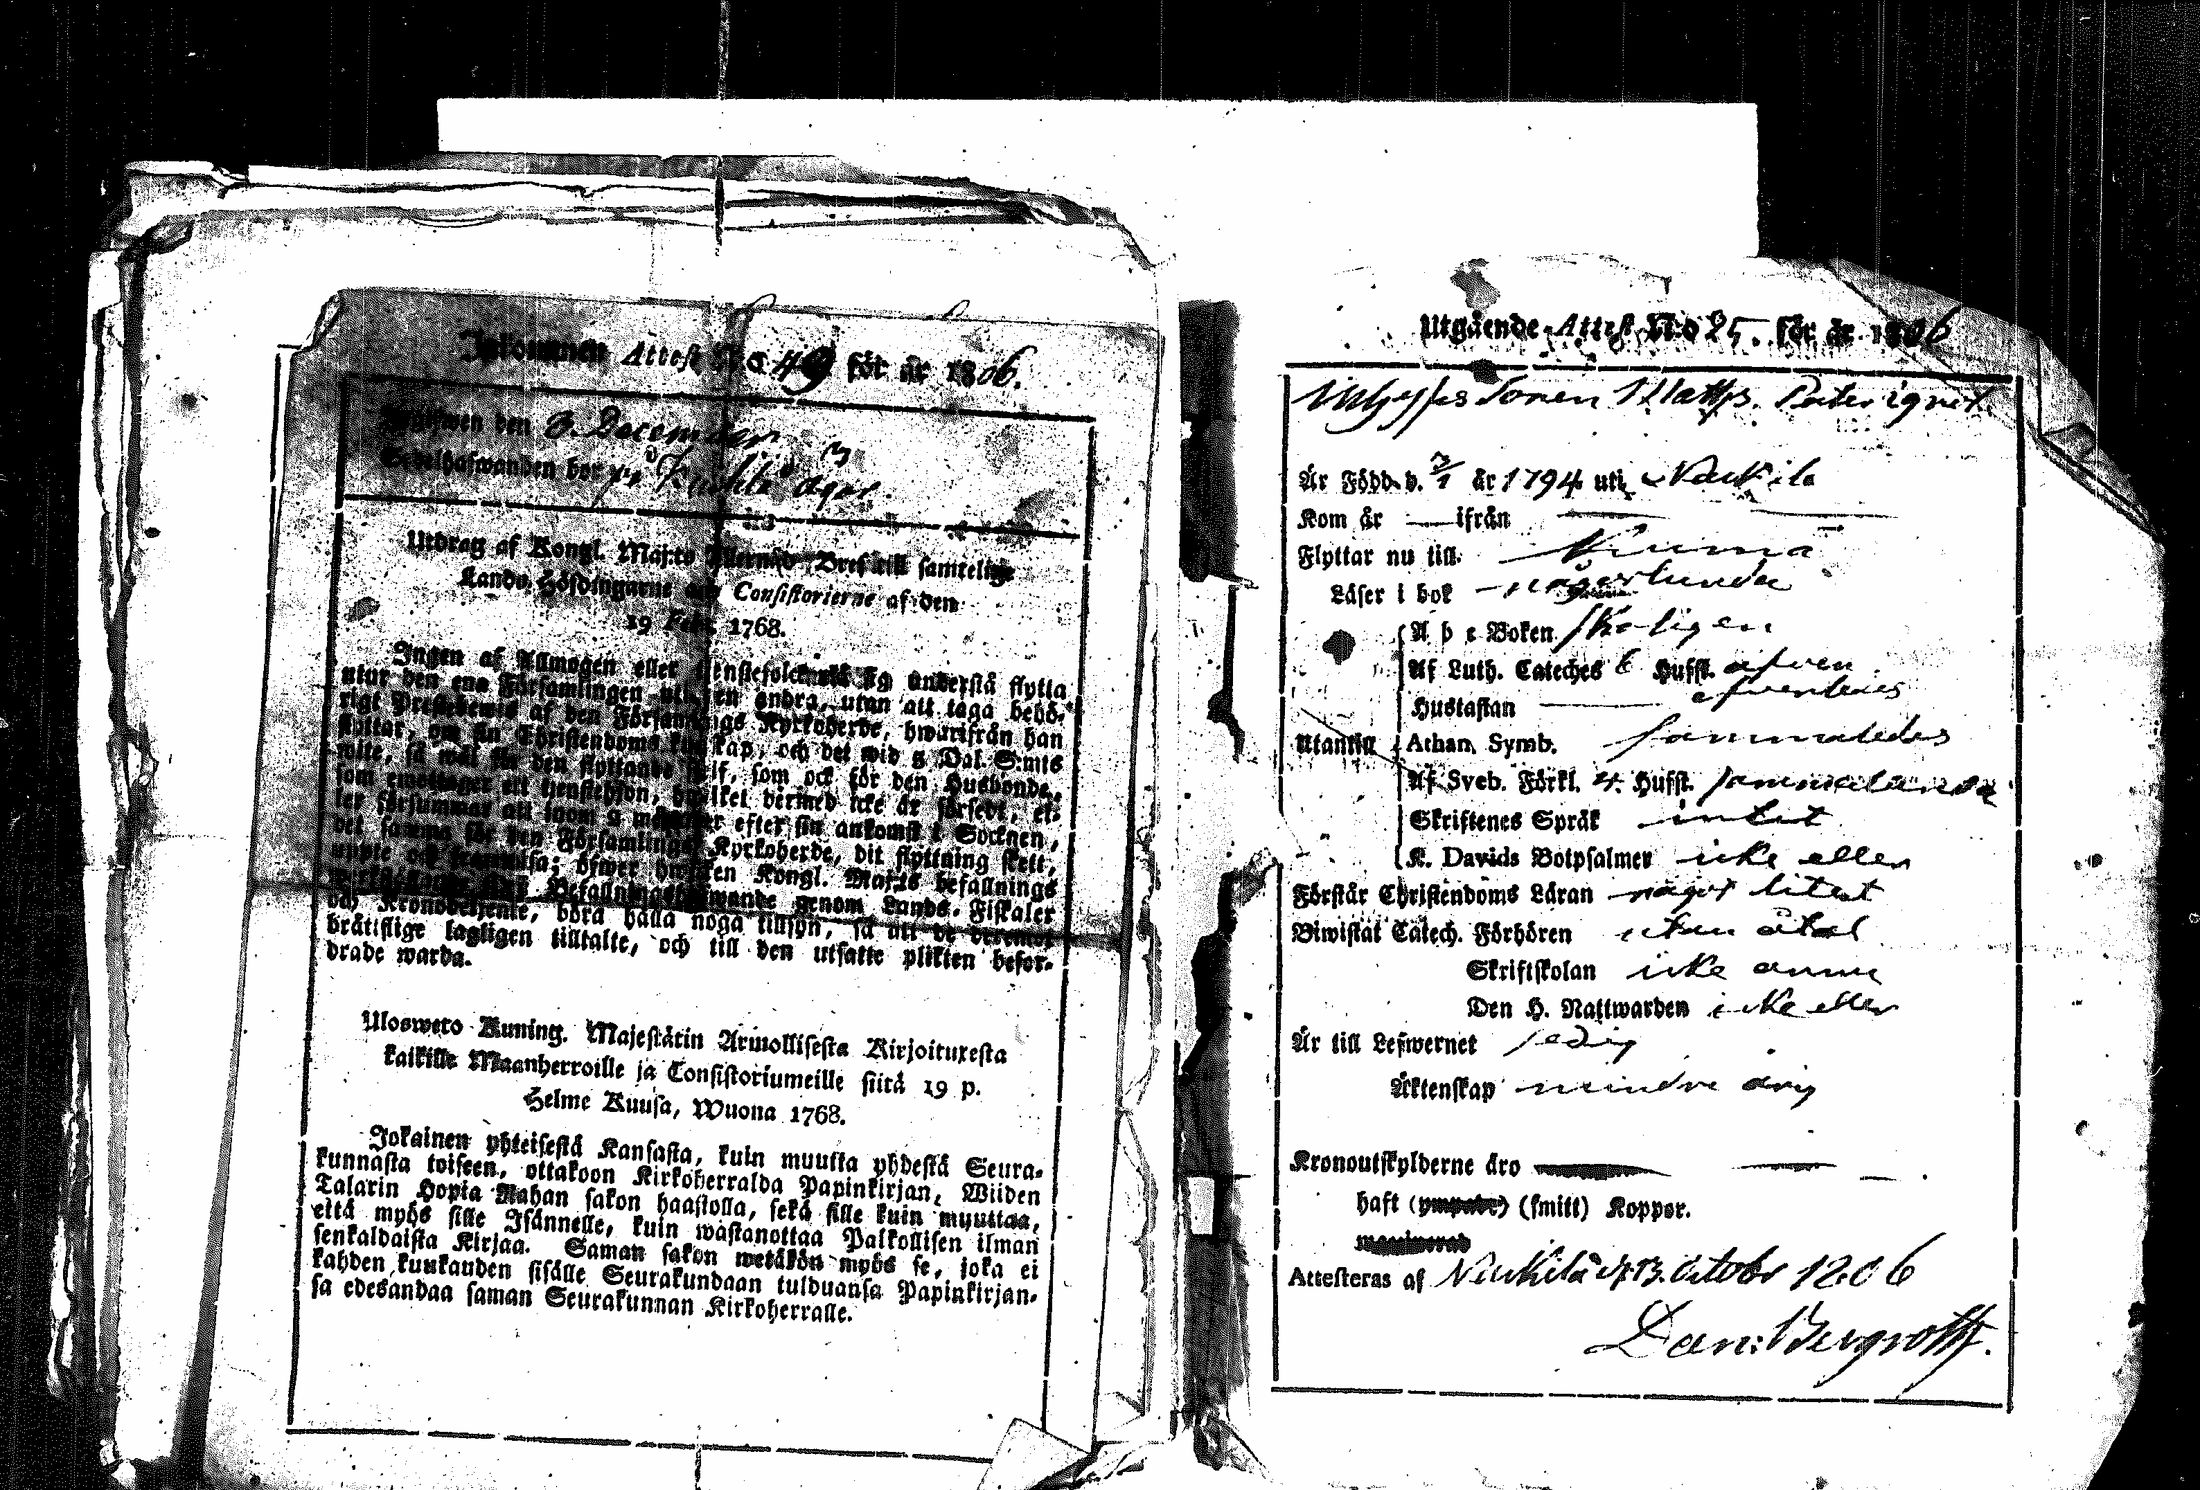 Inkommen Attest N:o 49 för år 1806.
gifwen den 3. December
Sedelhafwanden bor på ägor
Utdrag af Kongl. Maj:ts Bref till samtelige
Lands-Höfdingarne och Consistorierne af den
19 Febr. 1768.
Ingen af Allmogen eller tjenstefolck må sig understå flytta
utur den ena Församlingen uti den andra, utan att taga behö-
rigt Prestebewis af den Församlings Kyrkoherde, hwarifrån han
flyttar, om sin Christendoms kunskap, och det wid 5 Dal. S:mts
wite, så wäl för den flyttande sjelf, som ock för den Husbonde,
som emottager ett tjenstehjon, hwilket dermed icke är försedt, el-
ler försummar att inom 2 månader efter sin ankomst i Socknen,
det samma för den Församlings Kyrkoherde, dit flyttning skett,
uppte och framwisa; öfwer hwilken Kongl. Maj:ts befallnings
werkställighet Befallningshafwande genom Lands-Fiskaler
och Kronobetjente, böra hålla noga tillsyn, så att de deremot
brätslige lagligen tilltalte, och till den utsatte plikten befor-
drade warda.
Ulosweto Kuning. Majestätin Armollisesta Kirjoituxesta
kaikille Maanherroille ja Consistoriumeille siitä 19 p.
Helme Kuusa, Wuona 1768.
Jokainen yhteisestä Kansasta, kuin muutta yhdestä Seura-
kunnasta toiseen, ottakoon Kirkoherralda Papinkirjan, Wiiden
Talarin Hopia Rahan sakon haastolla, sekä sille kuin muuttaa,
että myös sille Isännelle, kuin wastanottaa Palkollisen ilman
senkaldaista Kirjaa. Saman sakon wetäkön myös se, joka ei
kahden kuukauden sisälle Seurakundaan tulduansa Papinkirjan-
sa edesandaa saman Seurakunnan Kirkoherralle.
Utgående Attest N:o 85. för år 1806
Sonen Matts
Är Född d. 3/1 år 1794 uti Naukila
Kom år — ifrån —
Flyttar nu till
Läser i bok någorlunda
A b c Boken skaligen
Af Luth. Cateches 6 Hufst. äfven
Hustaflan — äfvenledes
Utantill Athan. Symb. sammaledes
Af Sveb. Förkl. 4. Hufst. sammalunda
Skriftenes Språk intet
K. Davids Botpsalmer icke eller
Förstår Christendoms Läran något litet
Biwistat Catech. Förhören utan åtal
Skriftskolan icke ännu
Den H. Nattwarden icke eller
Är till Lefwernet sedig
Äktenskap minderårig
Kronoutskylderne äro —
haft (ympade) (smitt) Koppor.
Attesteras af Naukila d. 13. October 1806
Dan: Bergroth.